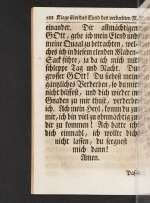 102 Klage über das Elend des verderbten M.
einander. Der allmächtigen
GOtt, gehe ich mein Elend und
meine Quaal zu betrachten, wel-
ches ich in diesem elenden Maden-
Sack führe, ja da ich mich mit
schleppe Tag und Nacht. Du
grosser GOtt! Du siehest mein
gängliches Verderben, so du mir
nicht hilfest, und dich wieder in
Gnaden zu mir thust, verderbe
ich. Ach mein Herr, komm du zu
mir, ich bin viel zu ohnmächtig zu
dir zu kommen! Ach hätte ich
dich einmahl, ich wollte dich
nicht lassen, du segnest
mich dann!
Amen.